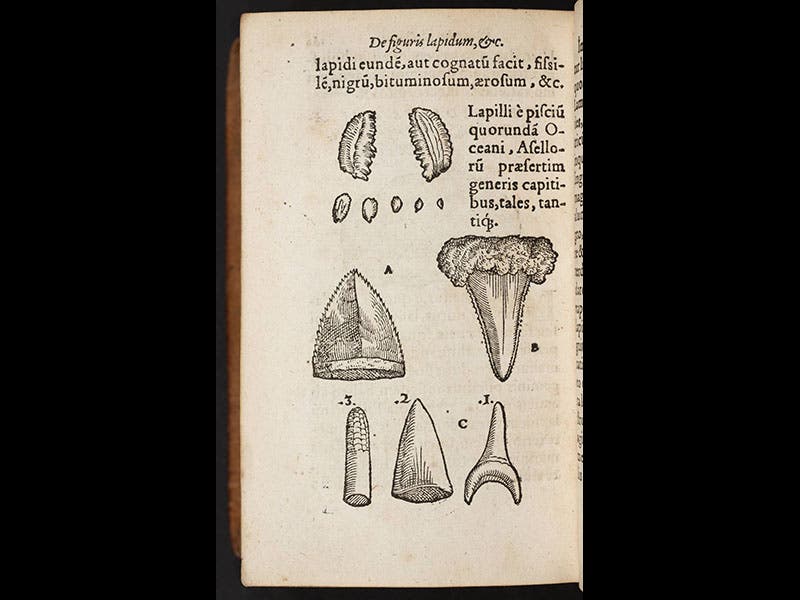 De figuris lapidum, &c.
lapidi eundē, aut cognatū facit, fiſſi-
lē, nigrū, bituminoſum, æroſum, &c.
Lapilli è piſciū
quorundā O-
ceani, Aſello-
rū præſertim
generis capiti-
bus, tales, tan-
tiq́;.
A
B
.3. .2. C .1.